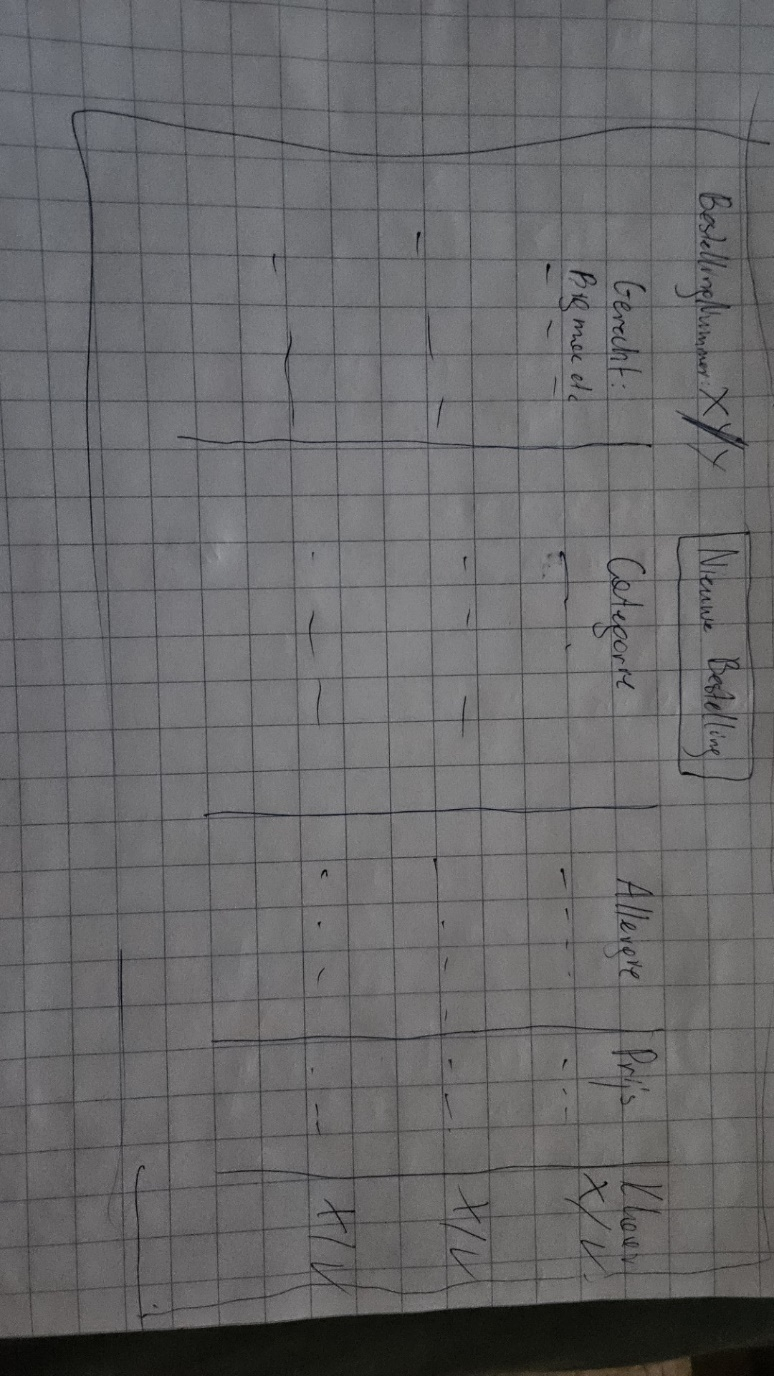 Bestellingnummer: X Y
Nieuwe Bestelling
Gerecht: Categorie Allergie Prijs
Big mac etc X/V
X/V
X/V